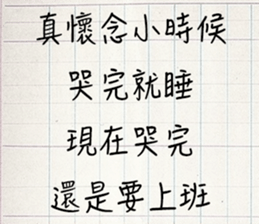 真懷念小時候
哭完就睡
現在哭完
還是要上班